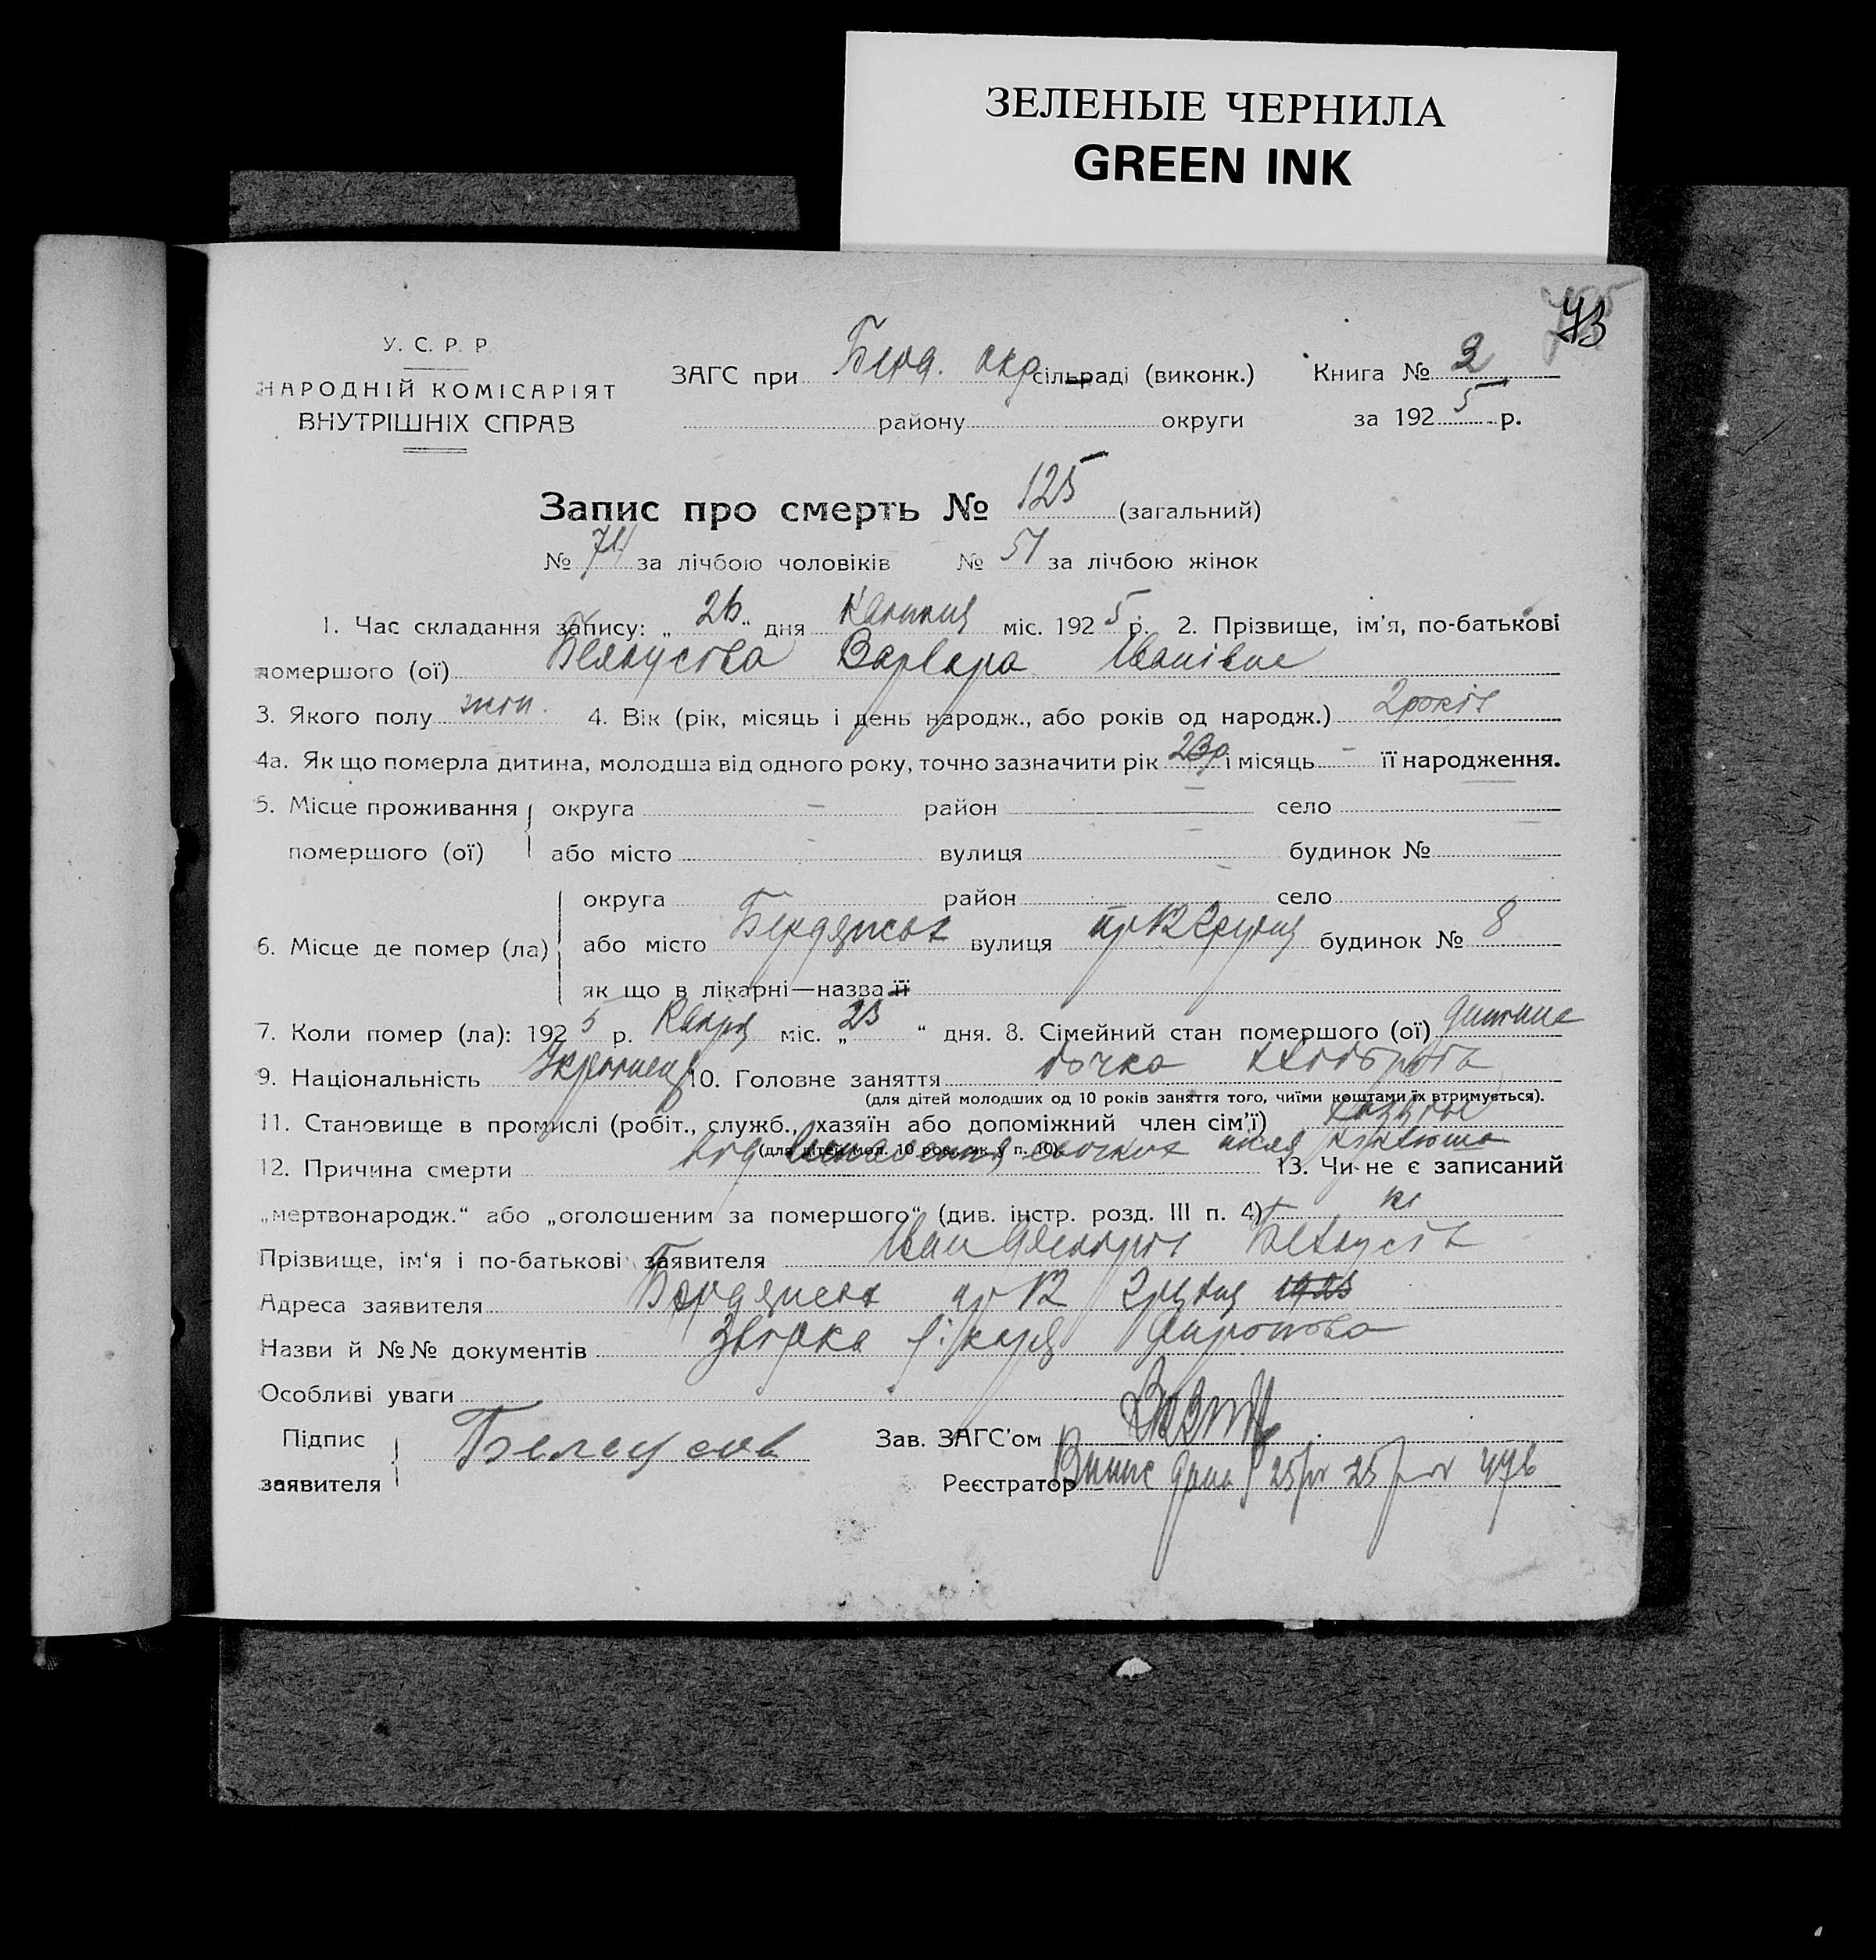 ЗЕЛЕНЫЕ ЧЕРНИЛА
GREEN INK
73
У. С. Р. Р.
НАРОДНІЙ КОМІСАРІЯТ
ВНУТРІШНІХ СПРАВ
ЗАГС при Берд. окр сільраді (виконк.) Книга № 2
району округи за 1925 р.
Запис про смерть № 125 (загальний)
№ 74 за лічбою чоловіків № 51 за лічбою жінок
1. Час складання запису: „ 26 " дня міс. 1925 р. 2. Прізвище, ім'я, по-батькові
помершого (ої) Белоусова Варвара Іванівна
3. Якого полу жін. 4. Вік (рік, місяць і день народж., або років од народж.) 2 років
4а. Як що померла дитина, молодша від одного року, точно зазначити рік 23р і місяць – її народження.
5. Місце проживання округа – район – село –
помершого (ої) або місто – вулиця – будинок № –
6. Місце де помер (ла) округа район село
або місто Бердянськ вулиця будинок № 8
як що в лікарні—назва її
7. Коли помер (ла): 1925 р. міс. „ 25 " дня. 8. Сімейний стан помершого (ої) дитина
9. Національність 10. Головне заняття дочка хлібороба
(для дітей молодших од 10 років заняття того, чиїми коштами їх втримується).
11. Становище в промислі (робіт., служб., хазяїн або допоміжний член сім'ї)
(для дітей мол. 10 років, як у п. 10)
12. Причина смерти після коклюша 13. Чи не є записаний
„мертвонародж." або „оголошеним за помершого" (див. інстр. розд. III п. 4) ні
Прізвище, ім'я і по-батькові заявителя Іван Белоусів
Адреса заявителя Бердянськ 1925
Назви й №№ документів лікаря
Особливі уваги
Підпис
заявителя Белоусов
Зав. ЗАГС'ом
Реєстратор